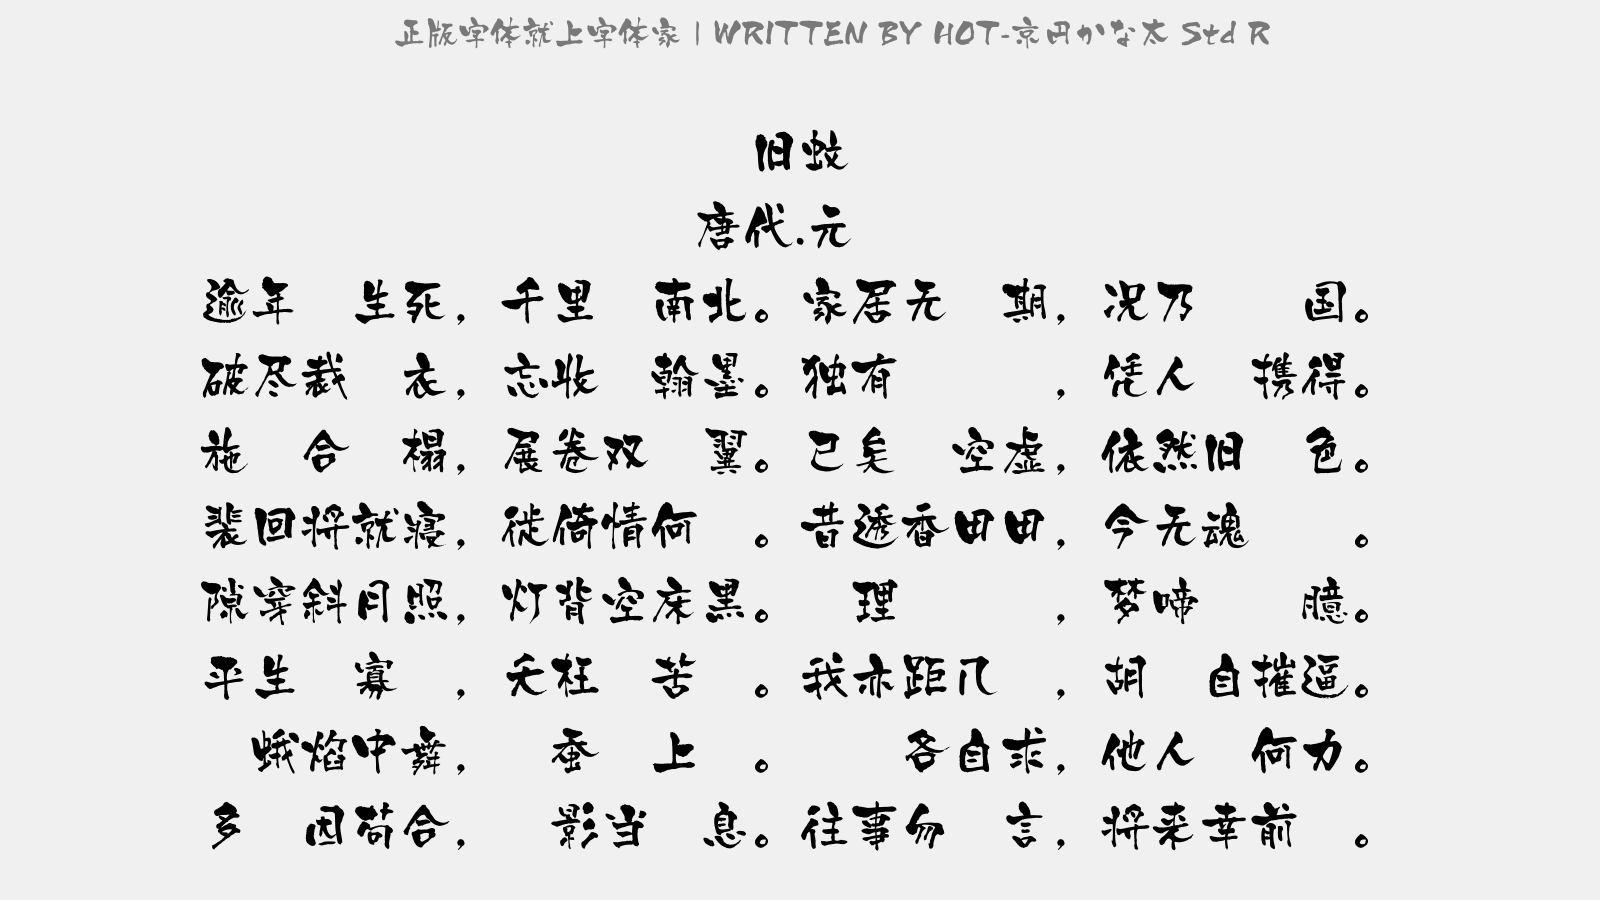 正版字体就上字体家 | WRITTEN BY HOT-京円かな太 Std R
旧蚊
唐代.元
逾年 生死，千里 南北。家居无 期，况乃 国。
破尽裁 衣，忘收 翰墨。独有 ，凭人 携得。
施 合 榻，展卷双 翼。已矣 空虚，依然旧 色。
裴回将就寝，徙倚情何 。昔透香田田，今无魂 。
隙穿斜月照，灯背空床黑。 理 ，梦啼 臆。
平生 寡 ，夭枉 苦 。我亦距几 ，胡 自摧逼。
蛾焰中舞， 蚕 上 。 各自求，他人 何力。
多 因苟合， 影当 息。往事勿 言，将来幸前 。